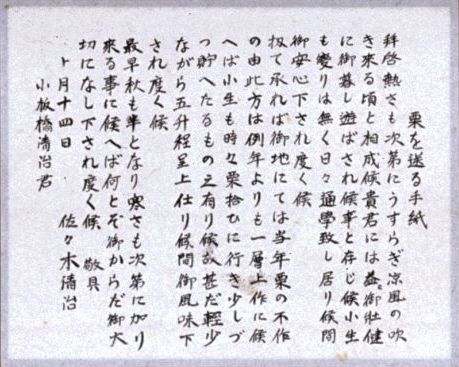 栗を送る手紙
拝啓熱さも次第にうすらぎ凉風の吹
き来る頃と相成候貴君には益々御壮健
に御暮し遊ばされ候事と存じ候小生
も変りは無く日々通学致し居り候間
御安心下され度く候
扨て承れば御地にては当年栗の不作
の由此方は例年よりも一層上作に候
へば小生も時々栗拾ひに行き少しづ
つ貯へたるもの之有り候故甚だ軽少
ながら五升程呈上仕り候間御風味下
され度く候
最早秋も半となり寒さも次第に加り
来る事に候へば何とぞ御からだ御大
切になし下され度く候 敬具
十月十四日 佐々木清治
小板橋清治君